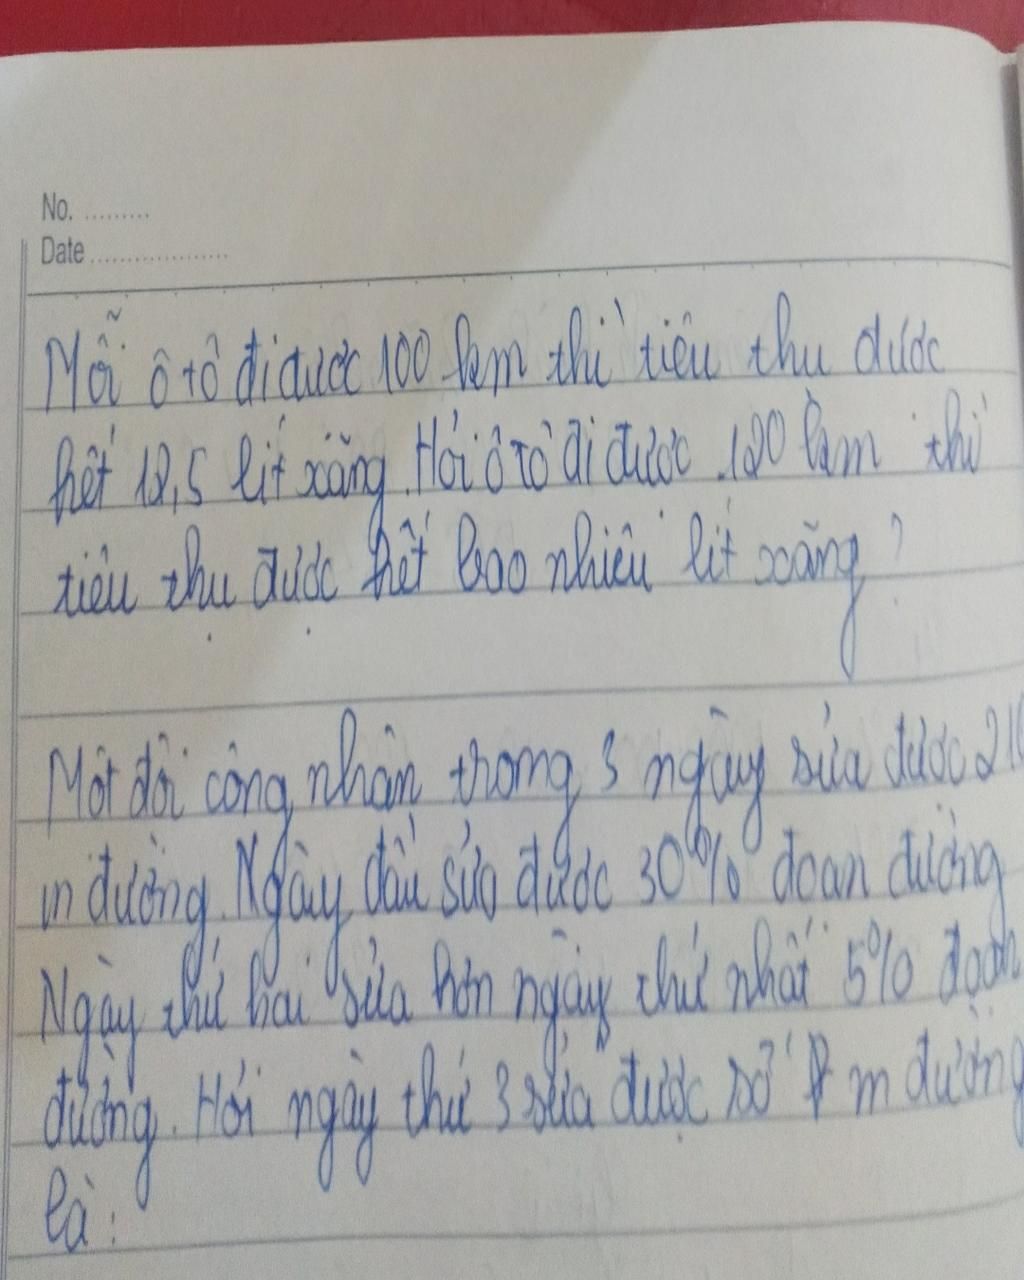 No. .........
Date ...................
Mỗi ô tô đi được 100 km thì tiêu thu được
hết 12,5 lít xăng. Hỏi ô tô đi được 120 km thì
tiêu thụ được hết bao nhiêu lít xăng?
Một đội công nhân trong 3 ngày sửa được
m đường. Ngày đầu sửa được 30% đoạn đường
Ngày thứ hai sửa hơn ngày thứ nhất 5% đoạn
đường. Hỏi ngày thứ 3 sửa được số m đường
là: